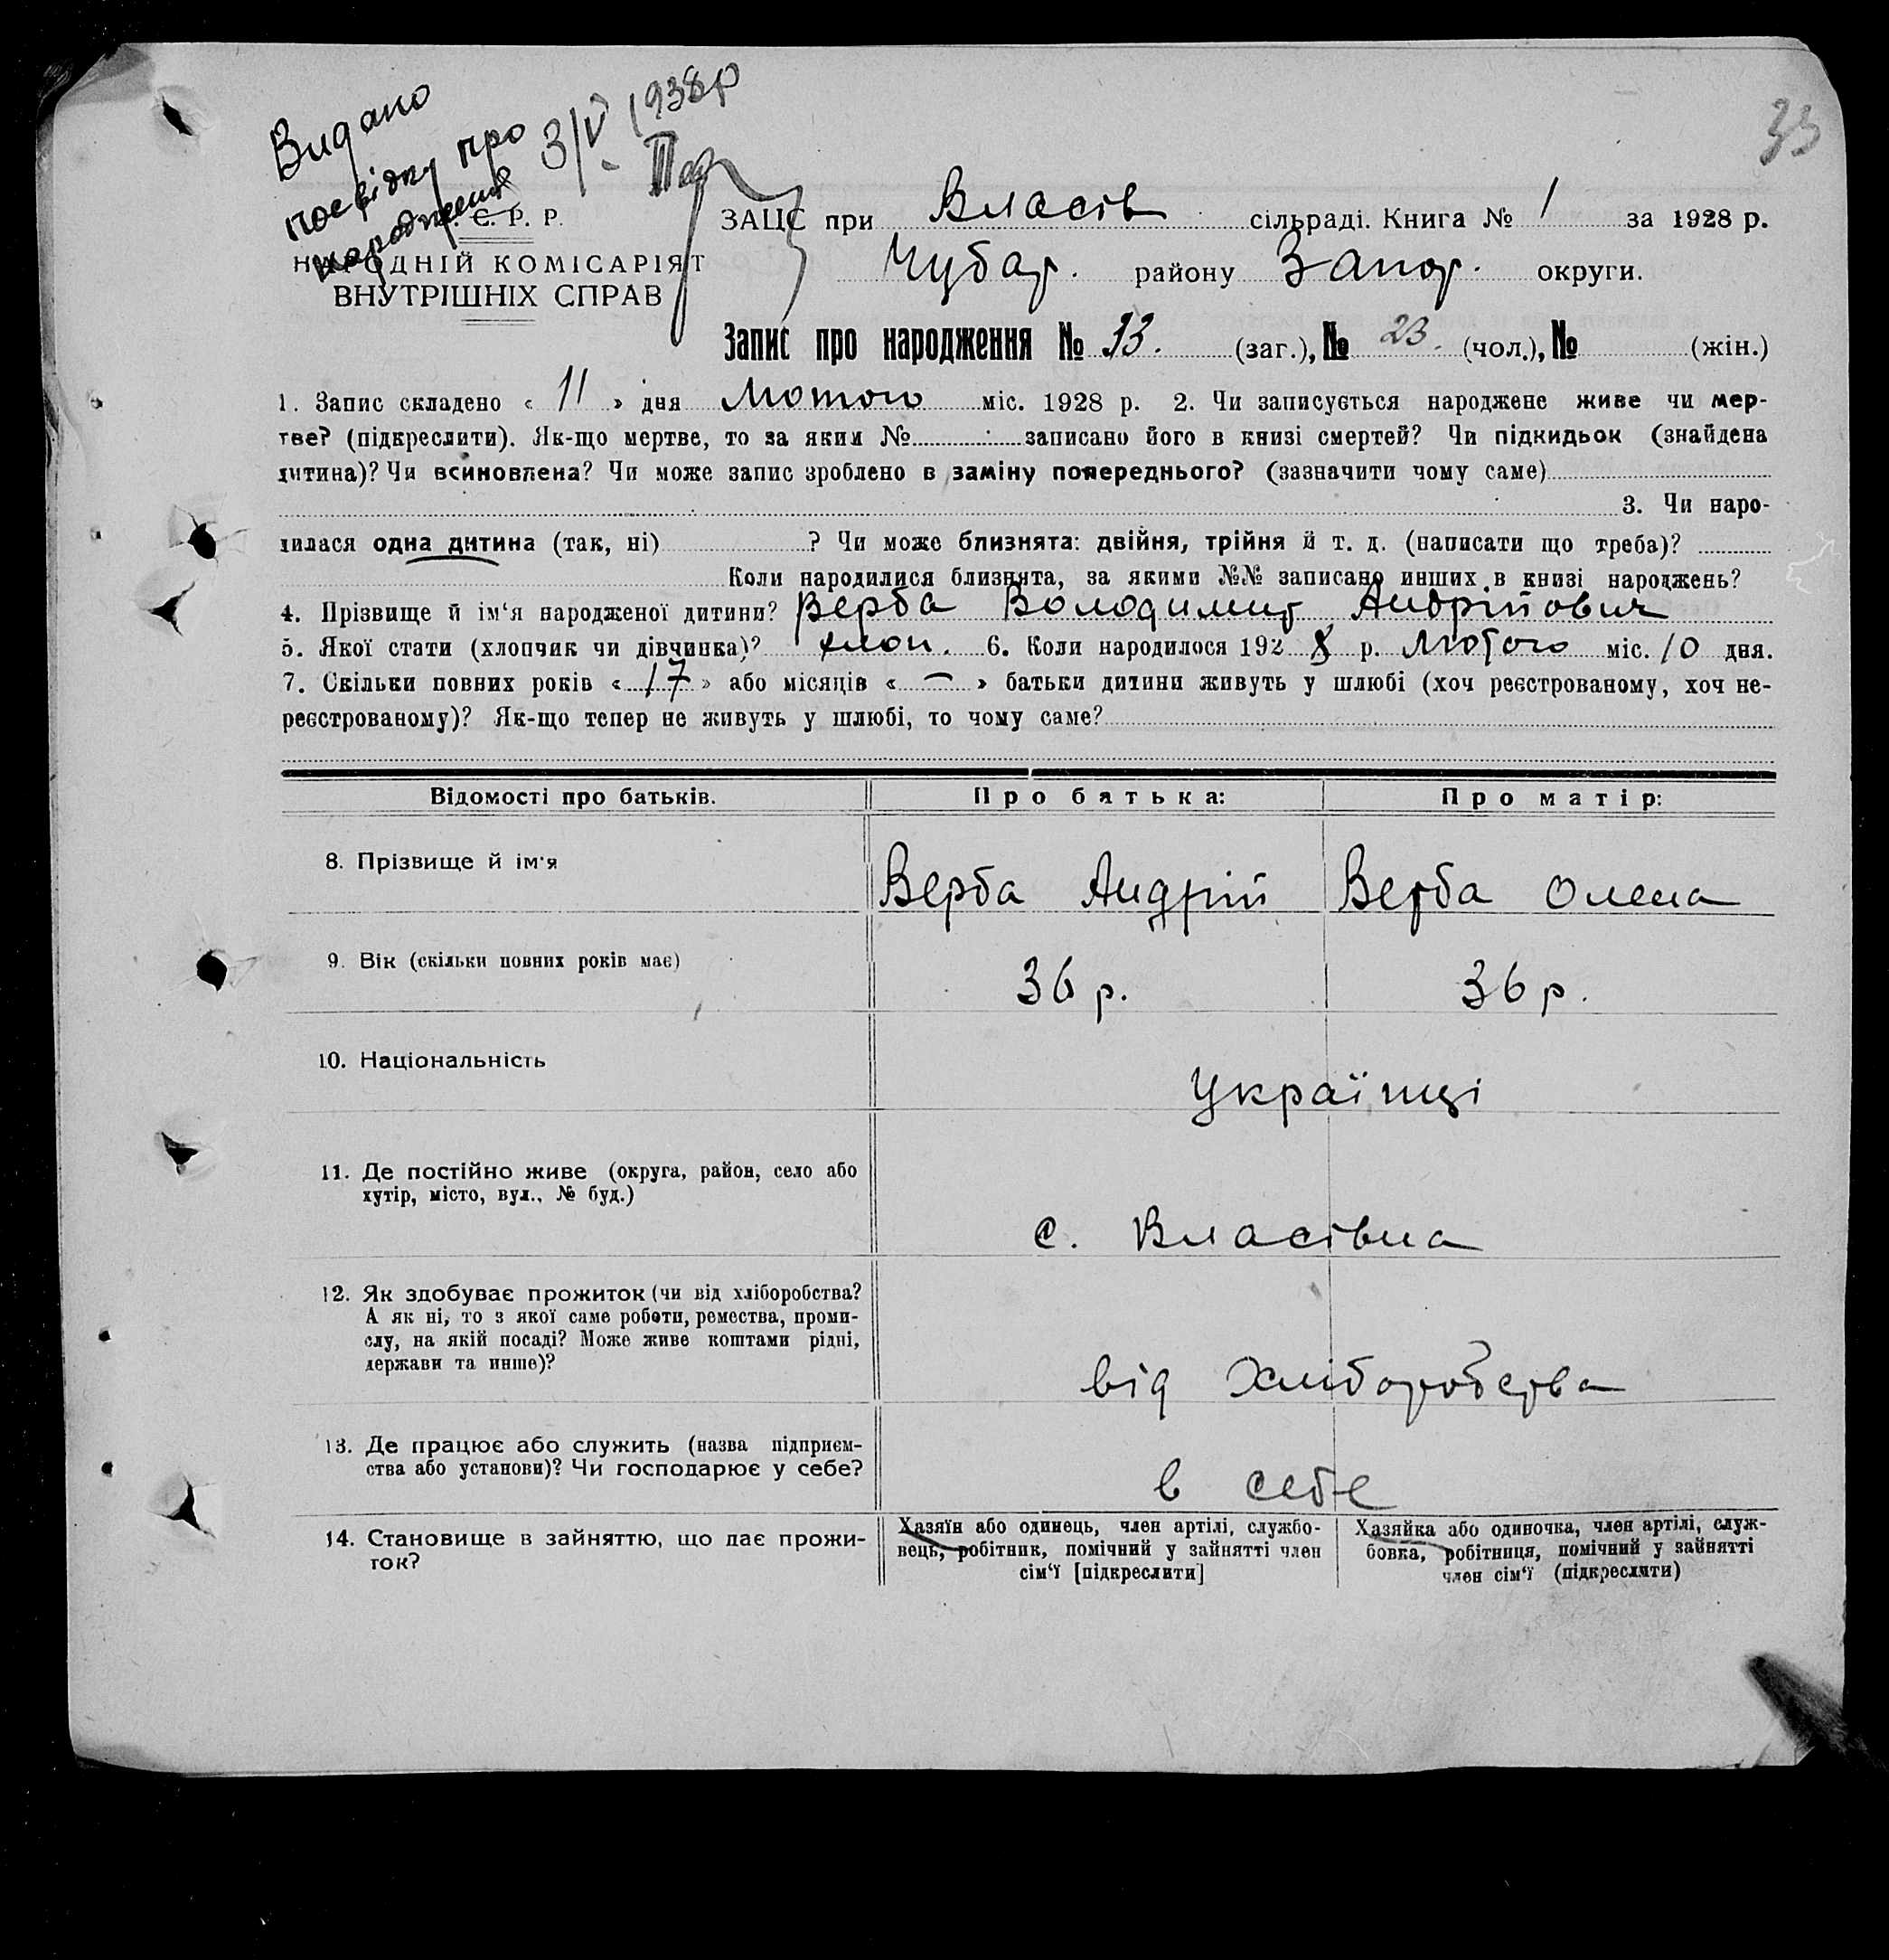 Видано
посвідку про
народження 3/V-1938р
33
. Є. Р. Р.
НАРОДНІЙ КОМІСАРІЯТ
ВНУТРІШНІХ СПРАВ
ЗАЦС при Власів сільраді. Книга № 1 за 1928 р.
Чубар. району Запор. округи.
Запис про народження № 33. (заг.), № 23. (чол.), № (жін.)
1. Запис складено « 11 » дня Лютого міс. 1928 р. 2. Чи записується народжене живе чи мер-
тве? (підкреслити). Як-що мертве, то за яким № записано його в книзі смертей? Чи підкидьок (знайдена
дитина)? Чи всиновлена? Чи може запис зроблено в заміну попереднього? (зазначити чому саме)
3. Чи наро-
дилася одна дитина (так, ні) ? Чи може близнята: двійня, трійня й т. д. (написати що треба)?
Коли народилися близнята, за якими №№ записано инших в книзі народжень?
4. Прізвище й ім'я народженої дитини? Верба Володимир Андрійович
5. Якої стати (хлопчик чи дівчинка)? хлоп. 6. Коли народилося 192 8 р. Лютого міс. 10 дня.
7. Скільки повних років « 17 » або місяців « — » батьки дитини живуть у шлюбі (хоч реєстрованому, хоч не-
реєстрованому)? Як-що тепер не живуть у шлюбі, то чому саме?
Відомості про батьків. Про батька: Про матір:
8. Прізвище й ім'я Верба Андрій Верба Олена
9. Вік (скільки повних років має) 36 р. 36 р.
10. Національність Українці
11. Де постійно живе (округа, район, село або
хутір, місто, вул., № буд.) с. Власівка
12. Як здобуває прожиток (чи від хліборобства?
А як ні, то з якої саме роботи, ремества, проми-
слу, на якій посаді? Може живе коштами рідні,
держави та инше)? від Хліборобства
13. Де працює або служить (назва підприєм-
ства або установи)? Чи господарює у себе? в себе
14. Становище в зайняттю, що дає прожи-
ток?
Хазяїн або одинець, член артілі, службо-
вець, робітник, помічний у зайнятті член
сім'ї [підкреслити]
Хазяйка або одиночка, член артілі, служ-
бовка, робітниця, помічний у зайнятті
член сім'ї (підкреслити)